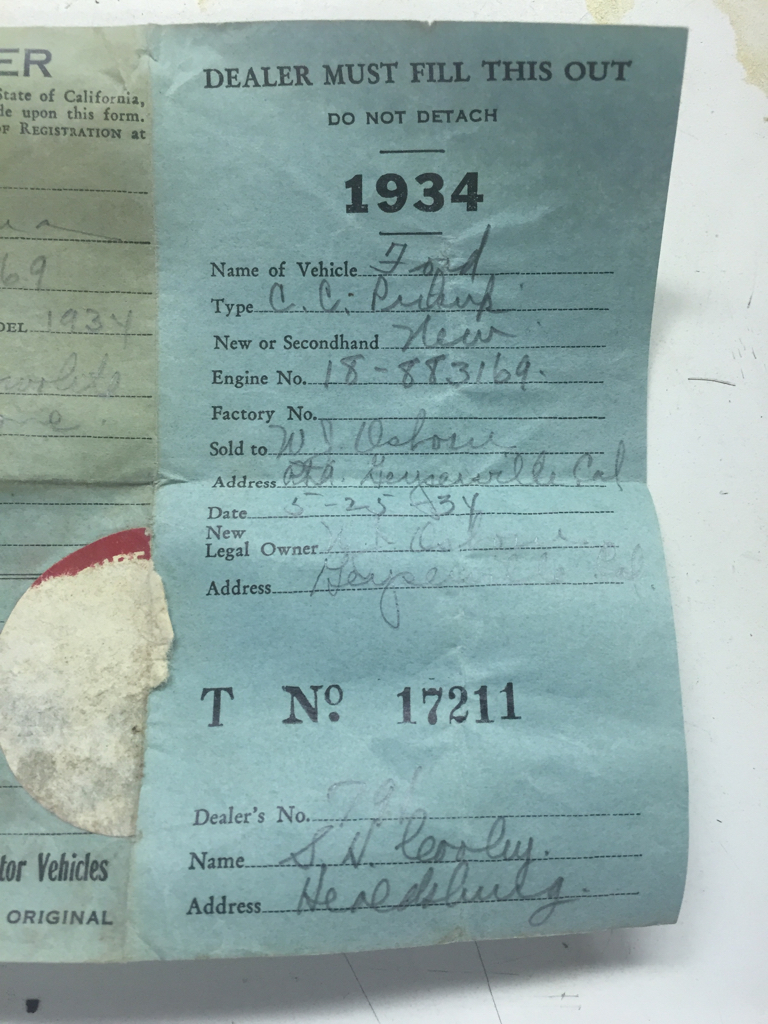 ER
State of California,
de upon this form.
OF REGISTRATION at
69
DEL 1934
tor Vehicles
ORIGINAL
DEALER MUST FILL THIS OUT
DO NOT DETACH
1934
Name of Vehicle Ford
Type C. C. Pickup
New or Secondhand New
Engine No. 18-883169.
Factory No.
Sold to W J Osborn
Address Geyserville Cal
Date 5-25-34
New
Legal Owner
Address
T No. 17211
Dealer's No.
Name S. N. Cooley.
Address Healdsburg.